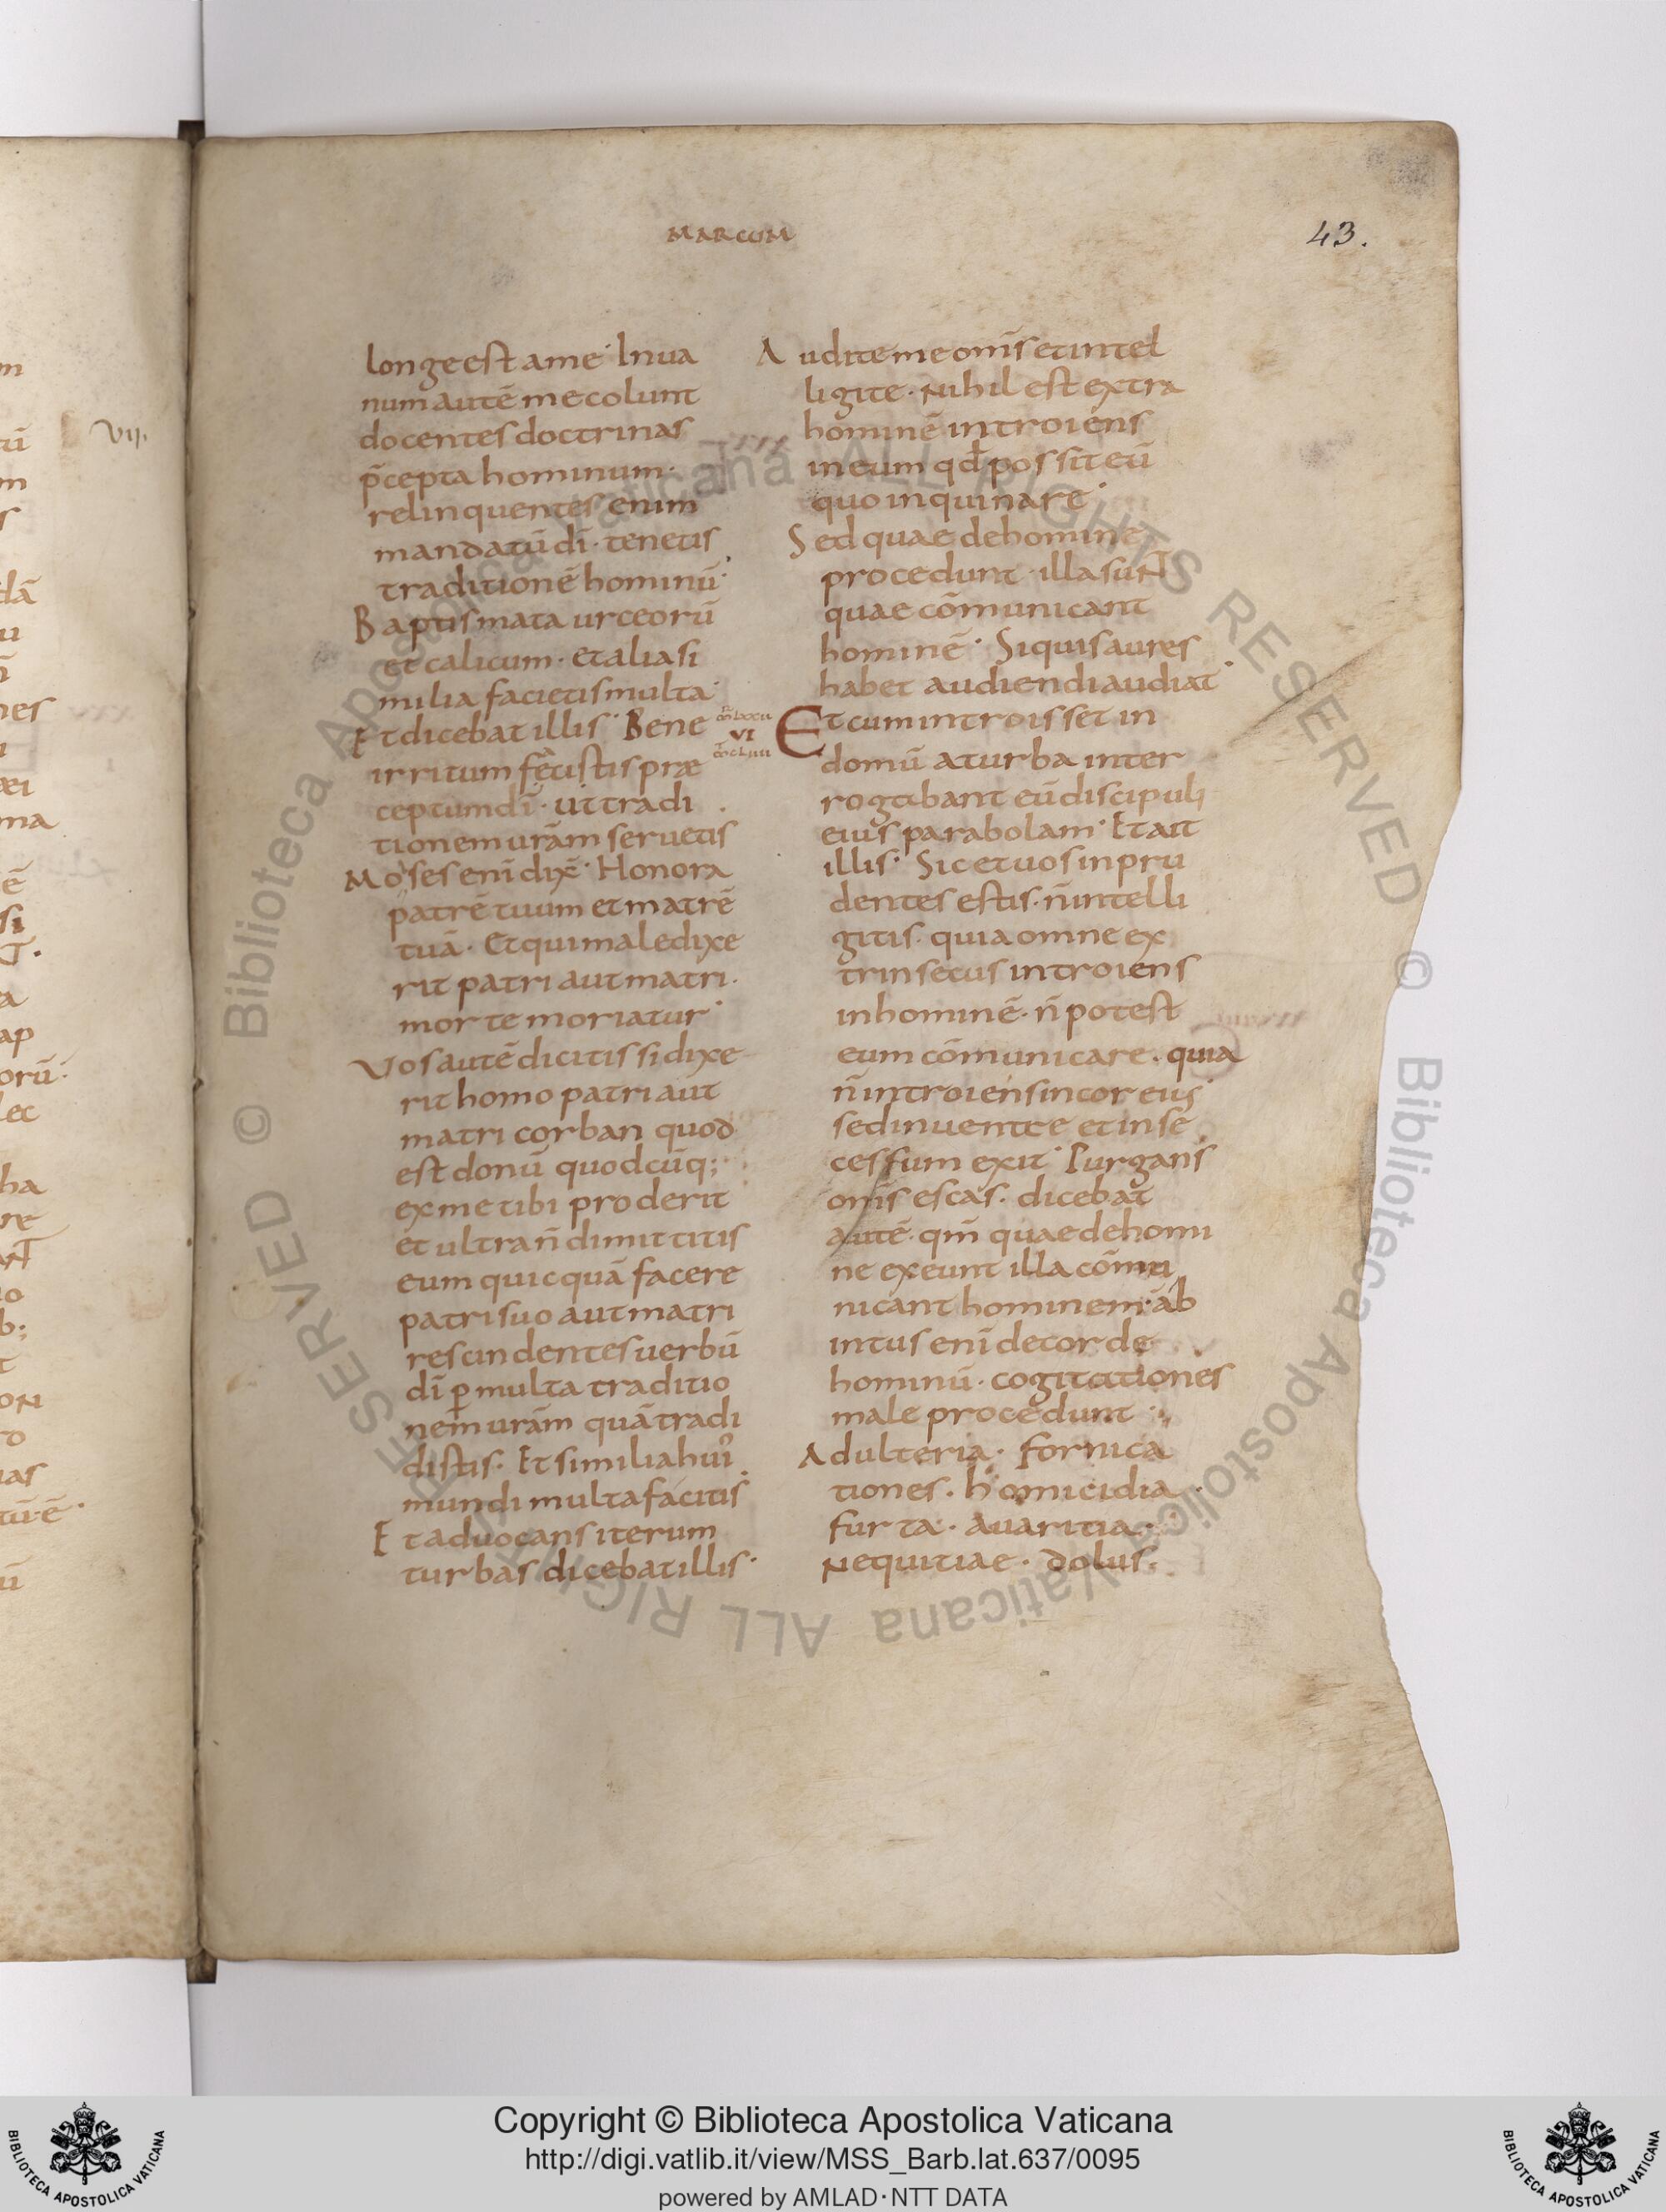 MARCUM
43.
longe est a me · In ua
num autē me colunt
docentes doctrinas
p̄cepta hominum ·
relinquentes enim
mandatū dī · tenetis
traditionē hominū ·
Baptismata urceorū
et calicum · et alia si
milia facietis multa ·
Et dicebat illis · Bene
irritum fecistis præ
ceptum dī · ut tradi
tionem urām seruetis
Moyses enī dix̄ · Honora
patrē tuum et matrē
tuā · Et qui maledixe
rit patri aut matri ·
morte moriatur ·
Vos autē dicitis si dixe
rit homo patri aut
matri corban quod
est donū quodcūq;
ex me tibi proderit
et ultra n̄ dimittitis
eum quicquā facere
patri suo aut matri
rescindentes uerbū
dī ꝑ multa traditio
nem urām quā tradi
distis · Et similia hui᾽
mundi multa facitis ·
Et aduocans iterum
turbas dicebat illis ·
Audite me om̄s et intel
ligite · Nihil est extra
hominē introiens
in eum qđ possit eū
quoinquinare ·
Sed quae de homine
procedunt · illa sunt
quae cōmunicant
hominē · Si quis aures
habet audiendi audiat ·
VI
Et cum introisset in
domū a turba inter
rogabant eū discipuli
eius parabolam · Et ait
illis · Sic et uos inpru
dentes estis · n̄ intelli
gitis · quia omne ex
trinsecus introiens
in hominē · n̄ potest
eum cōmunicare · quia
n̄ introiens in cor eius ·
sed in uentre et in se
cessum exit · Purgans
om̄s escas · dicebat
autē · qm̄ quae de homi
ne exeunt illa cōmu
nicant hominem · ab
intus enī de corde
hominū · cogitationes
male procedunt ·
Adulteria · fornica
tiones · homicidia ·
furta · auaritia ·
Nequitiae · dolus ·
VII.
Copyright © Biblioteca Apostolica Vaticana
http://digi.vatlib.it/view/MSS_Barb.lat.637/0095
powered by AMLAD·NTT DATA
BIBLIOTECA APOSTOLICA VATICANA
BIBLIOTECA APOSTOLICA VATICANA
© Biblioteca Apostolica Vaticana ALL RIGHTS RESERVED
© Biblioteca Apostolica Vaticana ALL RIGHTS RESERVED